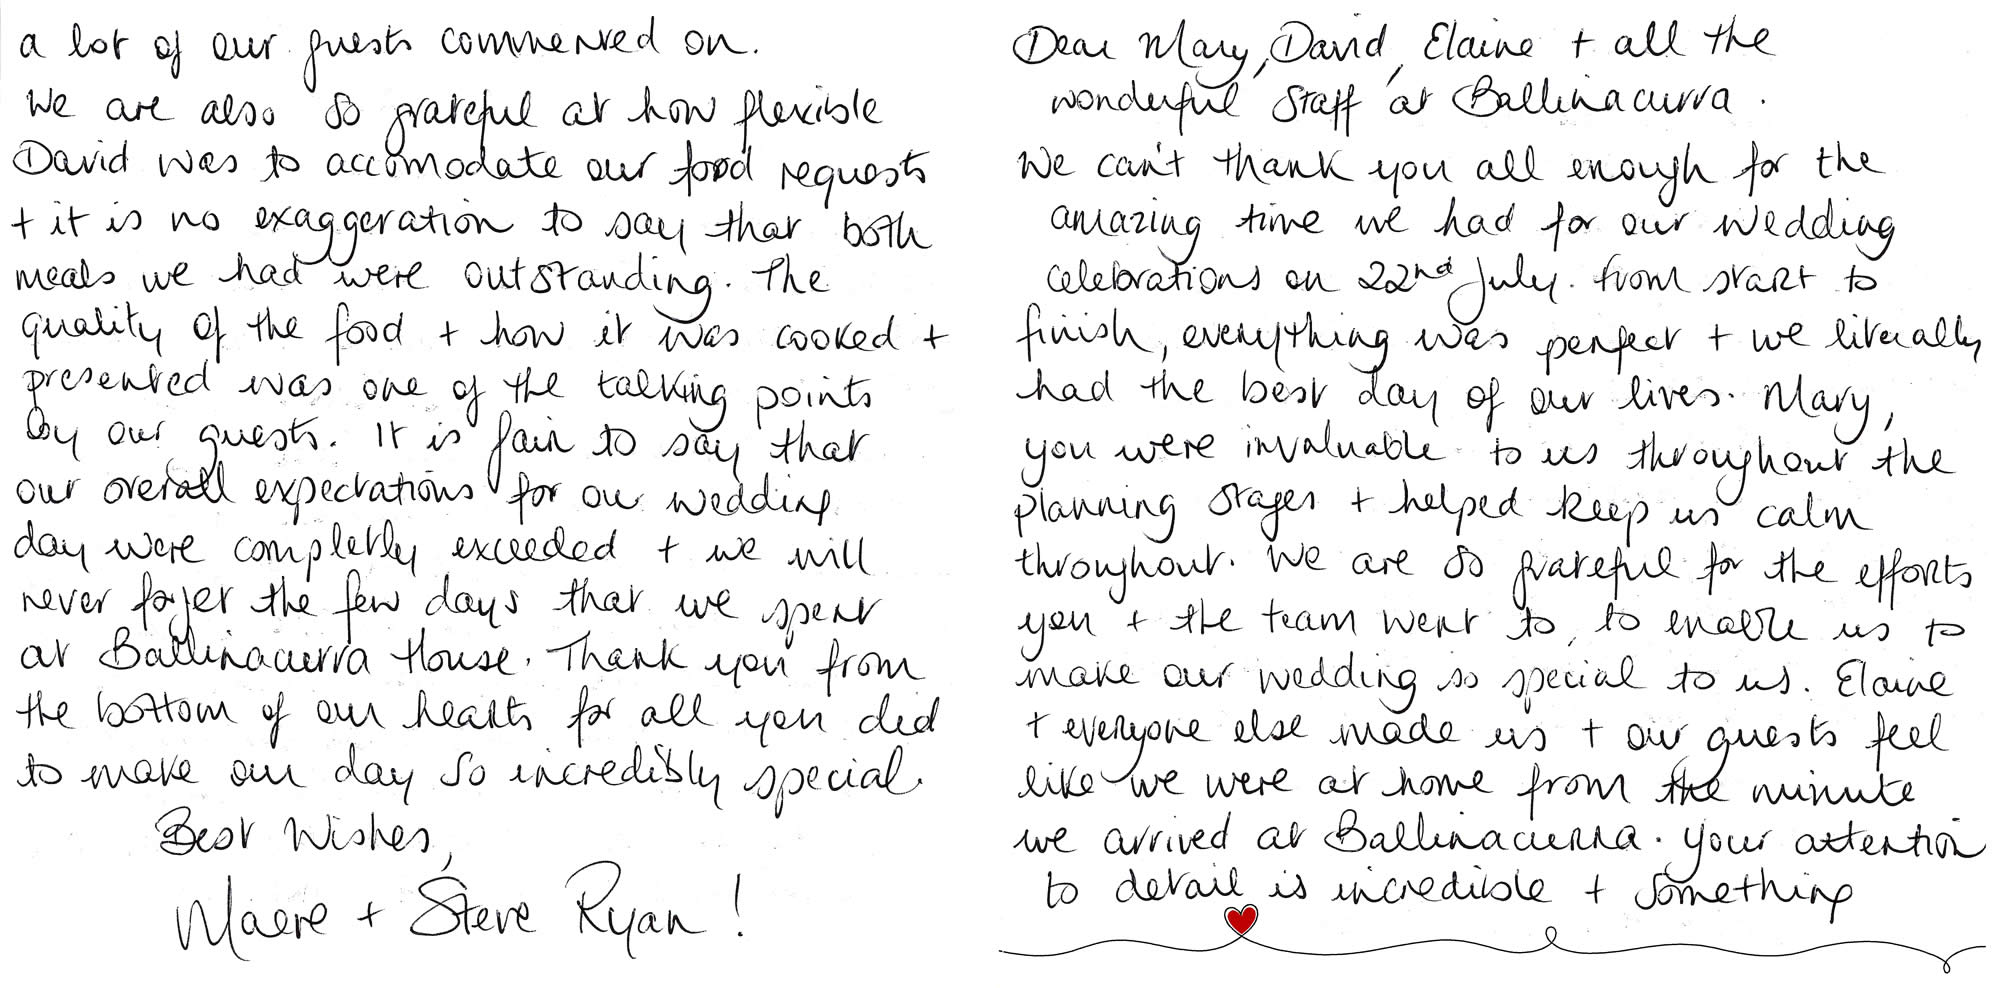 Dear Mary, David, Elaine + all the
wonderful Staff at Ballinacurra.
We can't thank you all enough for the
amazing time we had for our wedding
celebrations on 22nd July. From start to
finish, everything was perfect + we literally
had the best day of our lives. Mary,
you were invaluable to us throughout the
planning stages + helped keep us calm
throughout. We are so grateful for the efforts
you + the team went to, to enable us to
make our wedding so special to us. Elaine
+ everyone else made us + our guests feel
like we were at home from the minute
we arrived at Ballinacurra. Your attention
to detail is incredible + something
a lot of our guests commented on.
We are also so grateful at how flexible
David was to accomodate our food requests
+ it is no exaggeration to say that both
meals we had were outstanding. The
quality of the food + how it was cooked +
presented was one of the talking points
by our guests. It is fair to say that
our overall expectations for our wedding
day were completly exceeded + we will
never forget the few days that we spent
at Ballinacurra House. Thank you from
the bottom of our hearts for all you did
to make our day so incredibly special.
Best Wishes,
Maeve + Steve Ryan!